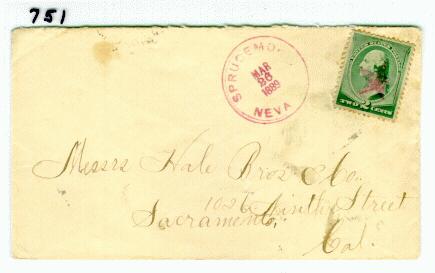 751
SPRUCEMO
MAR
26
1889
NEVA
UNITED STATES POSTAGE
2
TWO CENTS
Messrs Hale Bros & Co.
1026 Ninth Street
Sacramento,
Cal.